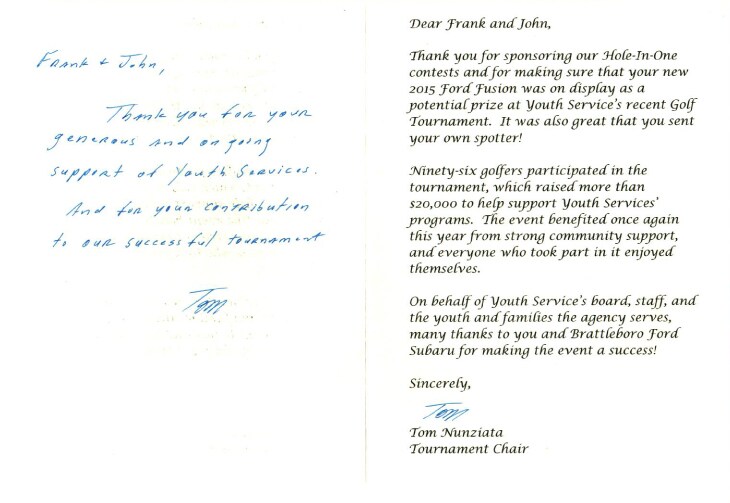 Frank & John,
Thank you for your
generous and on going
support of Youth Services.
And for your contribution
to our successful tournament
Tom
Dear Frank and John,
Thank you for sponsoring our Hole-In-One
contests and for making sure that your new
2015 Ford Fusion was on display as a
potential prize at Youth Service's recent Golf
Tournament. It was also great that you sent
your own spotter!
Ninety-six golfers participated in the
tournament, which raised more than
$20,000 to help support Youth Services'
programs. The event benefited once again
this year from strong community support,
and everyone who took part in it enjoyed
themselves.
On behalf of Youth Service's board, staff, and
the youth and families the agency serves,
many thanks to you and Brattleboro Ford
Subaru for making the event a success!
Sincerely,
Tom
Tom Nunziata
Tournament Chair